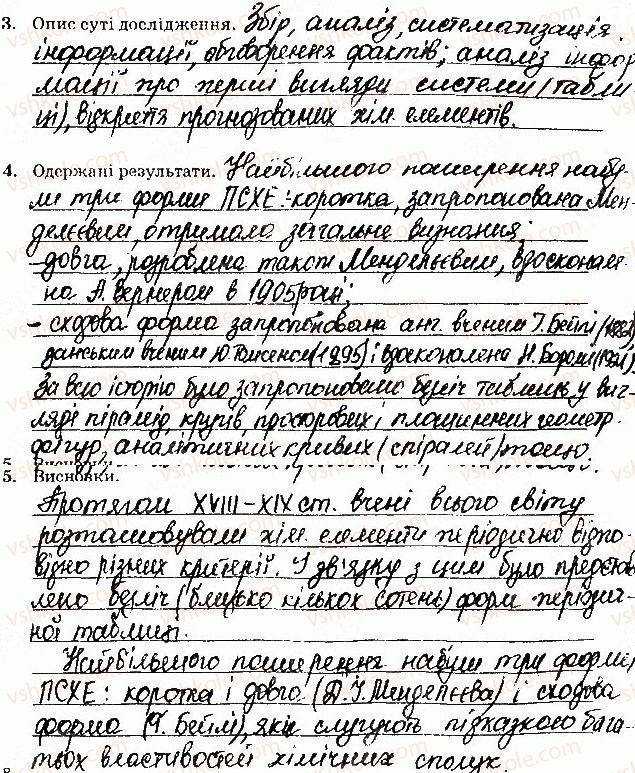 3. Опис суті дослідження. Збір, аналіз, систематизація
інформації, обговорення фактів; аналіз інфор
мації про перші вигляди системи (табли
ці), відкриття прогнозованих хім. елементів.
4. Одержані результати. Найбільшого поширення набу-
ли три форми ПСХЕ: -коротка, запропонована Мен-
делєєвим, отримало загальне визнання;
-довга, розроблена також Менделєєвим, вдосконале-
на А. Вернером в 1905 році;
- сходова форма запропонована анг. вченим Т. Бейлі (1882),
данським вченим Ю. Томсеном (1895) і вдосконалена Н. Бором (1921).
За всю історію було запропоновано безліч таблиць у виг-
ляді пірамід, кругів, просторових і площинних геометр.
фігур, аналітичних кривих (спіралей) тощо.
5. Висновки.
Протягом XVIII-XIX ст. вчені всього світу
розташовували хім. елементи періодично відпо-
відно різних критерії. І зв'язку з цим було представ
лено безліч (близько кількох сотень) форм періодич-
ної таблиці.
Найбільшого поширення набули три форми
ПСХЕ: коротка і довга (Д.І. Менделєєва) і сходова
форма (Т. Бейлі), які слугують підказкою бага-
тьох властивостей хімічних сполук